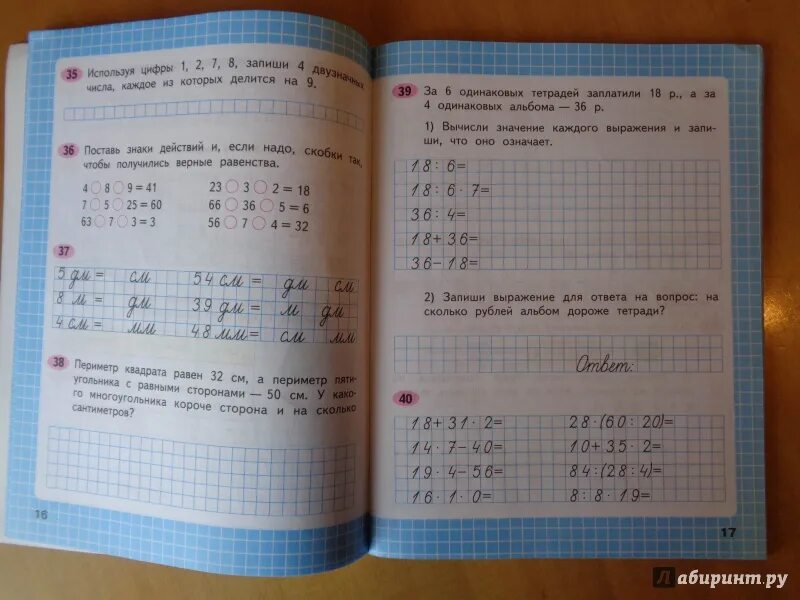 35 Используя цифры 1, 2, 7, 8, запиши 4 двузначных
числа, каждое из которых делится на 9.
36 Поставь знаки действий и, если надо, скобки так,
чтобы получились верные равенства.
4 8 9 = 41 23 3 2 = 18
7 5 25 = 60 66 36 5 = 6
63 7 3 = 3 56 7 4 = 32
37
5 дм = см 54 см = дм см
8 м = дм 39 дм = м дм
4 см = мм 48 мм = см мм
38 Периметр квадрата равен 32 см, а периметр пяти-
угольника с равными сторонами — 50 см. У како-
го многоугольника короче сторона и на сколько
сантиметров?
16
39 За 6 одинаковых тетрадей заплатили 18 р., а за
4 одинаковых альбома — 36 р.
1) Вычисли значение каждого выражения и запи-
ши, что оно означает.
18 : 6=
18 : 6 · 7=
36 : 4=
18+ 36=
36− 18=
2) Запиши выражение для ответа на вопрос: на
сколько рублей альбом дороже тетради?
Ответ:
40
18+ 31 · 2= 28 ·(60 : 20)=
14 · 7−40= 10+ 35 · 2=
19 · 4−56= 84 :(28 : 4)=
16 · 1 · 0= 8 : 8 · 19=
17
Лабиринт.ру